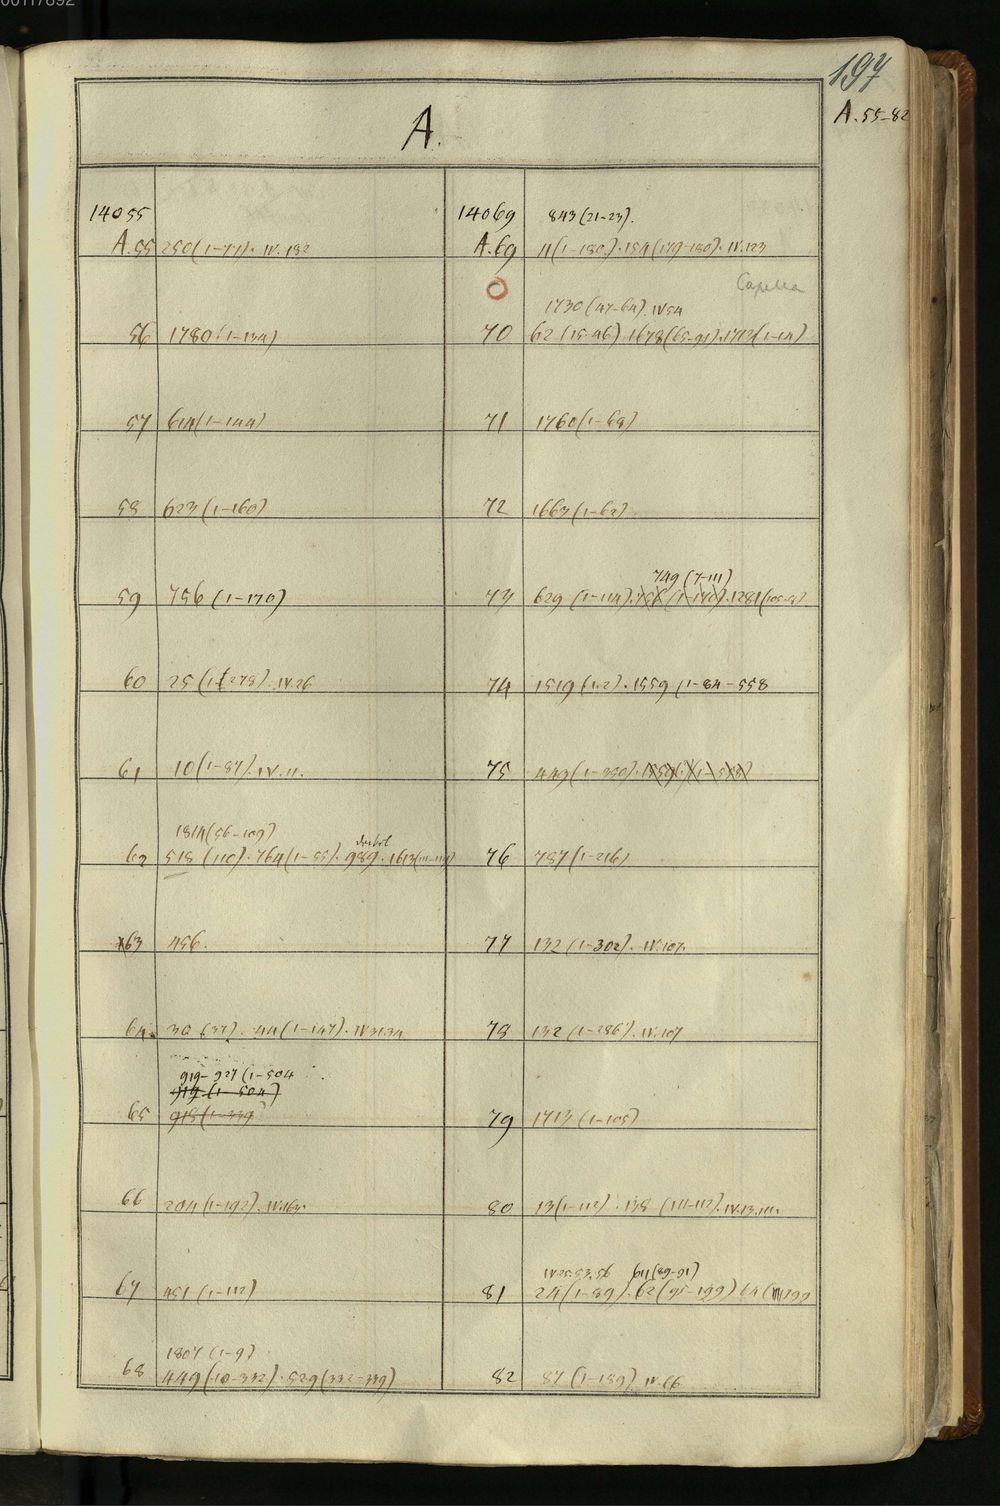 00117892
197
A. 55-82
A.
14055
A. 55 250 (1-77). IV. 182
56 1780 (1-134)
57 614 (1-144)
58 623 (1-160)
59 756 (1-170)
60 25 (1-278). IV. 26
61 10 (1-87). IV. 11.
1814 (56-109)
62 518 (110). 764 (1-55). 989. 1613
63 456.
64. 30 (37). 44 (1-147). IV.
919-927 (1-504
914 (1-504)
65 915 (1-339)
66 204 (1-192). IV. 163.
67 451 (1-112)
1807 (1-9)
68 449 (10-332). 529 (332-339)
14069 843 (21-23).
A. 69 11 (1-180). 154 (179-180). IV. 123
Capella
1730 (47-64). IV 54
70 62 (15-46). 1678 (65-91). 1713 (1-14)
71 1760 (1-68)
72 1663 (1-62)
749 (7-111)
73 629 (1-114). 1281
74 1519 (1.2). 1559 (1-84-558
75 449 (1-330). 1559
76 787 (1-216)
77 132 (1-302). IV. 107.
78 132 (1-286). IV. 107
79 1713 (1-105)
80 13 (1-112). 138 (111-112). IV. 13. 111.
IV 25. 53. 56 911 (89-91)
81 24 (1-89). 62 (95-199) 64
82 87 (1-189). IV. 66